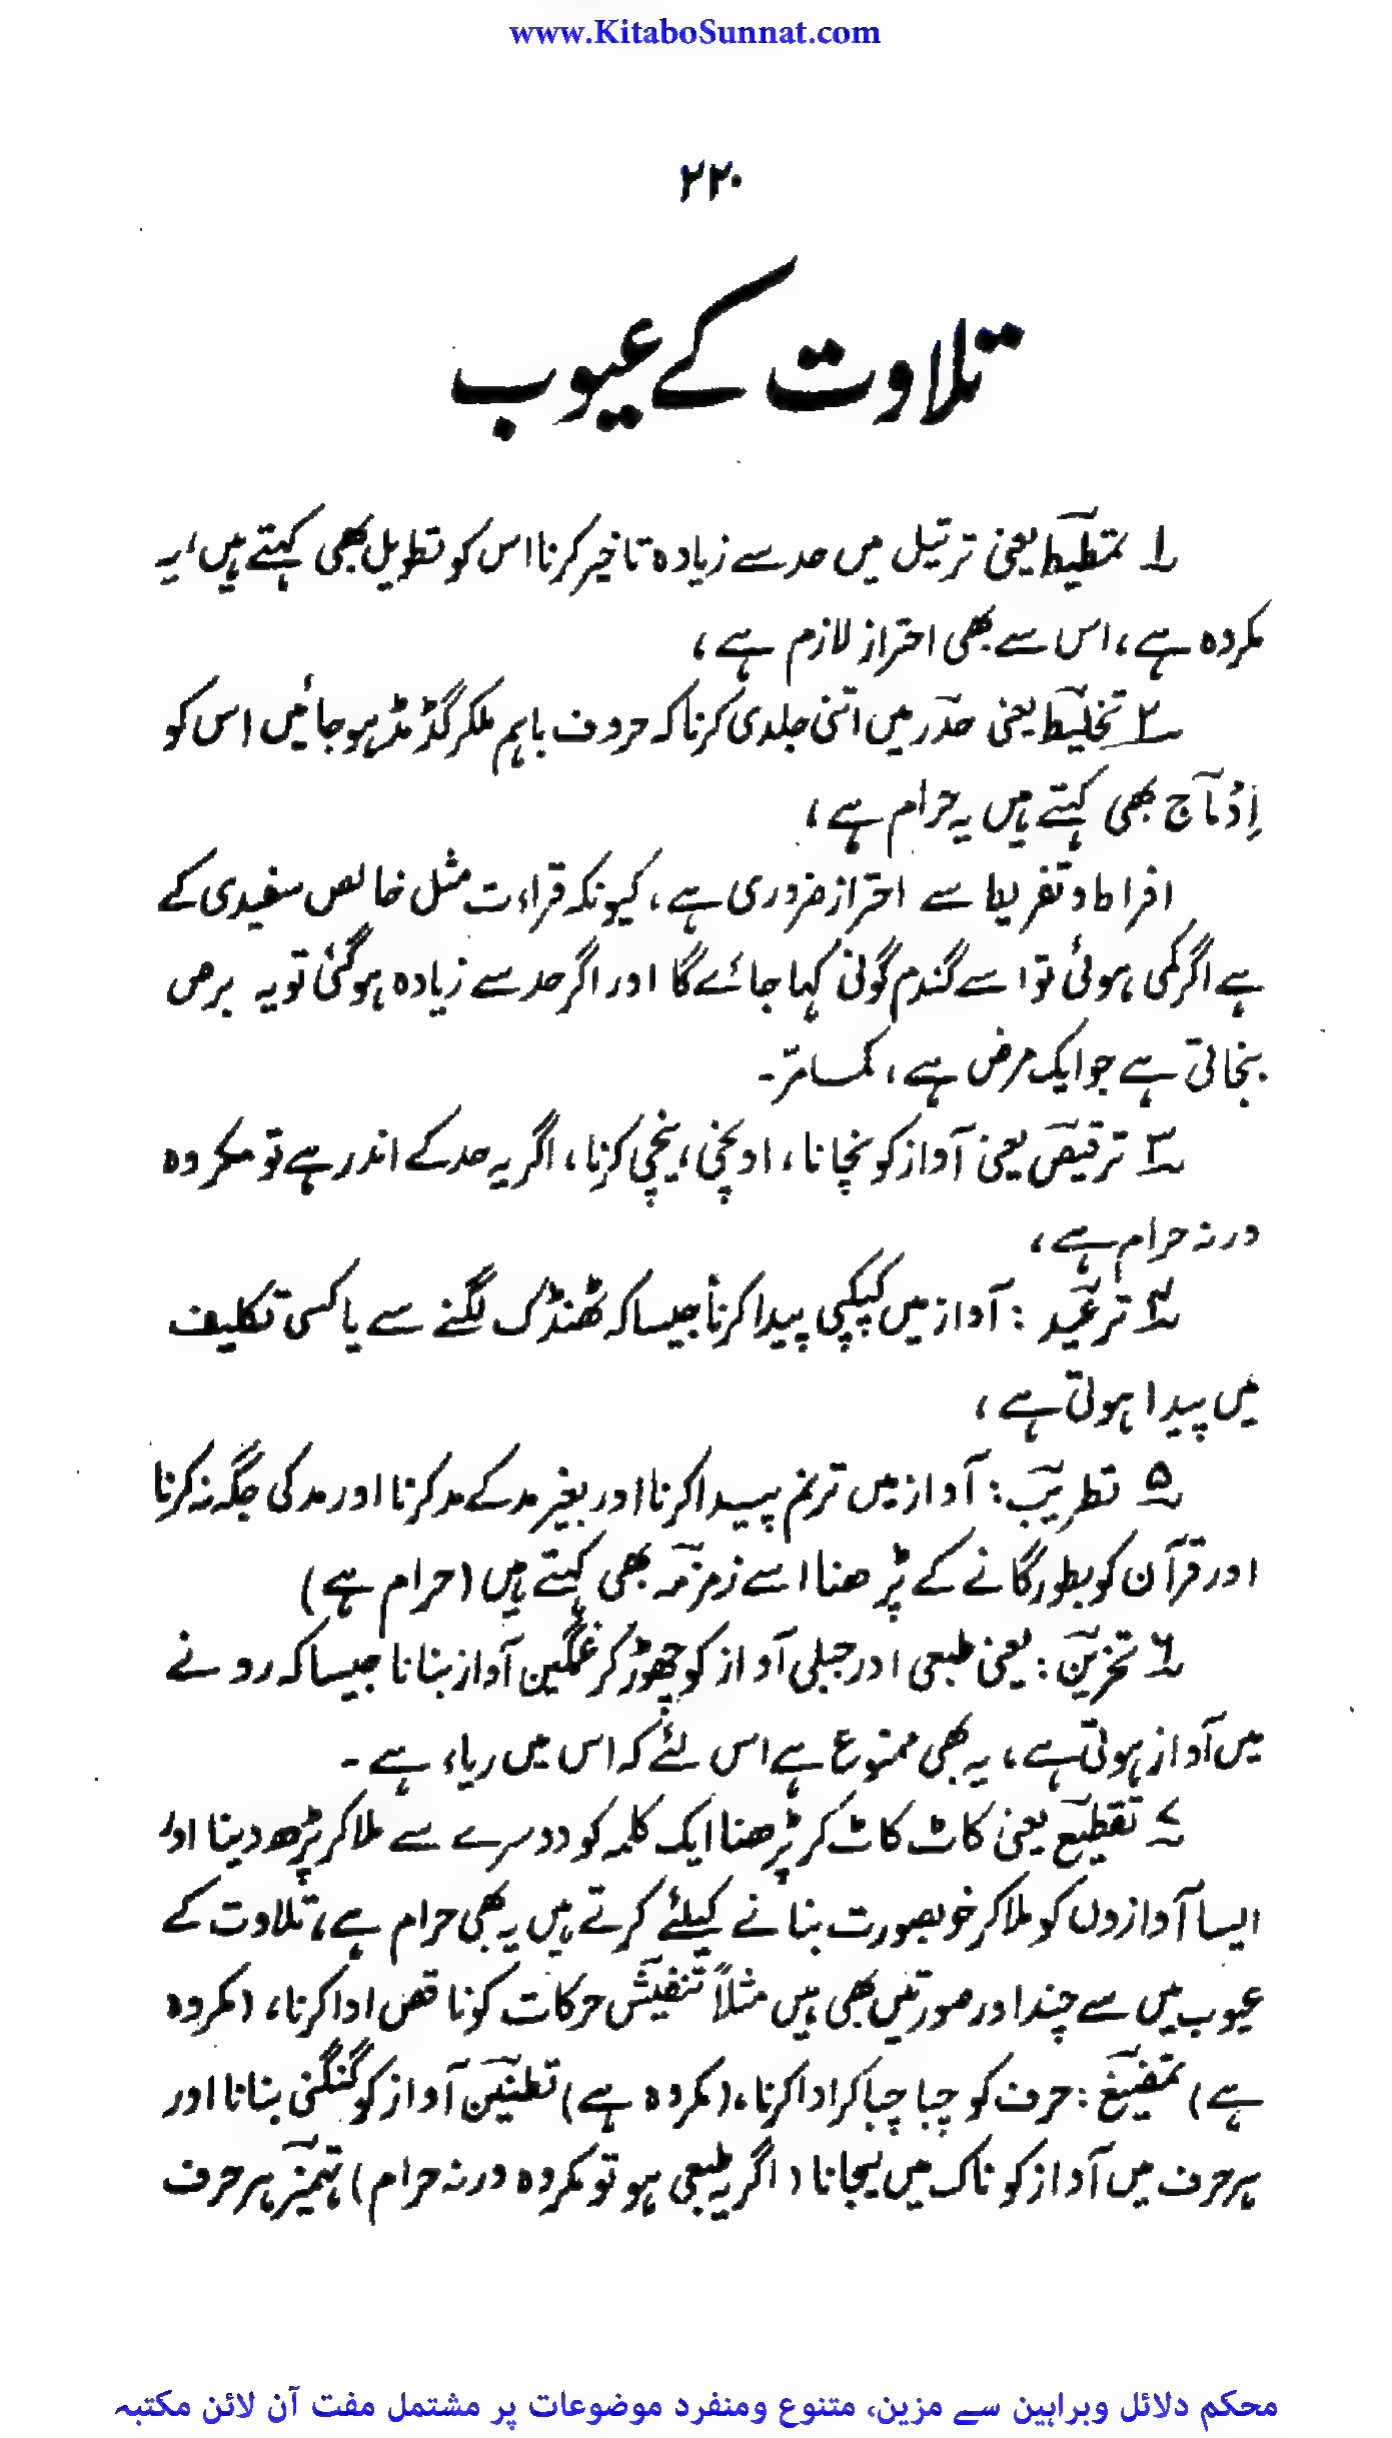 www.KitaboSunnat.com
۲۲۰
تلاوت کے عیوب
۱ تمطیط یعنی ترتیل میں حد سے زیادہ تاخیر کرنا اس کو تطویل بھی کہتے ہیں، یہ
مکروہ ہے، اس سے بھی احتراز لازم ہے،
۲ تخلیط یعنی حدر میں اتنی جلدی کرنا کہ حروف باہم ملکر گڈمڈ ہو جائیں اس کو
اِدْمَاج بھی کہتے ہیں یہ حرام ہے،
افراط و تفریط سے احتراز ضروری ہے، کیونکہ قراءت مثل خالص سفیدی کے
ہے اگر کمی ہوئی تو اسے گندم گونی کہا جائے گا اور اگر حد سے زیادہ ہو گئی تو یہ برص
بنجاتی ہے جو ایک مرض ہے، کما مرّ۔
۳ ترقیص یعنی آواز کو نچانا، اونچی، نیچی کرنا، اگر یہ حد کے اندر ہے تو مکروہ
ورنہ حرام ہے،
۴ ترعید : آواز میں کپکپی پیدا کرنا جیسا کہ ٹھنڈک لگنے سے یا کسی تکلیف
میں پیدا ہوتی ہے،
۵ تطریب : آواز میں ترنم پیدا کرنا اور بغیر مد کے مد کرنا اور مد کی جگہ نہ کرنا
اور قرآن کو بطور گانے کے پڑھنا اسے زمزمہ بھی کہتے ہیں (حرام ہے)
۶ تحزین : یعنی طبعی اور جبلی آواز کو چھوڑ کر غمگین آواز بنانا جیسا کہ رونے
میں آواز ہوتی ہے، یہ بھی ممنوع ہے اس لئے کہ اس میں ریاء ہے ۔
۷ تقطیع یعنی کاٹ کاٹ کر پڑھنا ایک کلمہ کو دوسرے سے ملا کر پڑھ دینا اور
ایسا آوازوں کو ملا کر خوبصورت بنانے کیلئے کرتے ہیں یہ بھی حرام ہے، تلاوت کے
عیوب میں سے چند اور صورتیں بھی ہیں مثلاً تنفیش حرکات کو ناقص ادا کرنا، (مکروہ
ہے) تمضیغ : حرف کو چبا چبا کر ادا کرنا، (مکروہ ہے) تطنین آواز کو گنگنی بنانا اور
ہر حرف میں آواز کو ناک میں لیجانا (اگر یہ طبعی ہو تو مکروہ ورنہ حرام) ہَمْیَز ہر حرف
محکم دلائل وبراہین سے مزین، متنوع ومنفرد موضوعات پر مشتمل مفت آن لائن مکتبہ